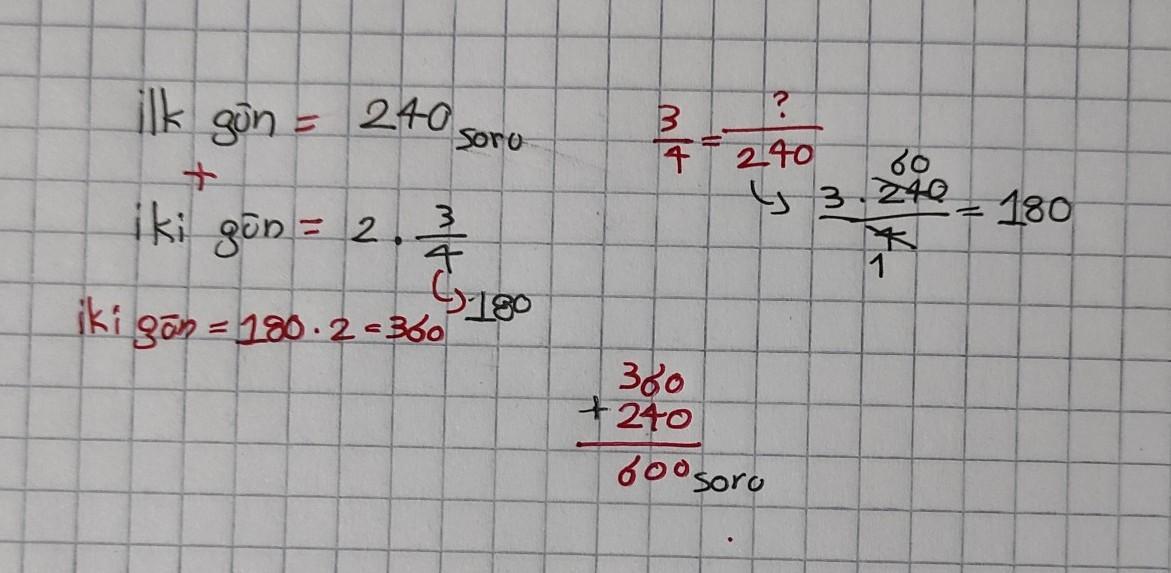 ilk gün = 240 soru
+
iki gün = 2 . 3/4
↳ 180
iki gün = 180 . 2 = 360
3/4 = ?/240
↳ 3 . 240/4 = 180
60
1
360
+ 240
600 soru